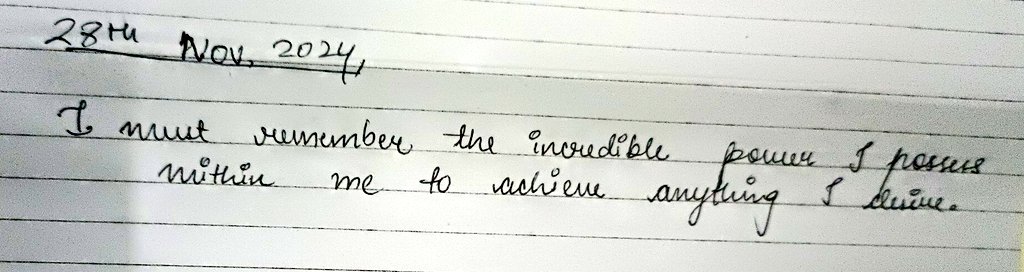 28TH Nov, 2024,
I must remember the incredible power I possess
within me to achieve anything I desire.